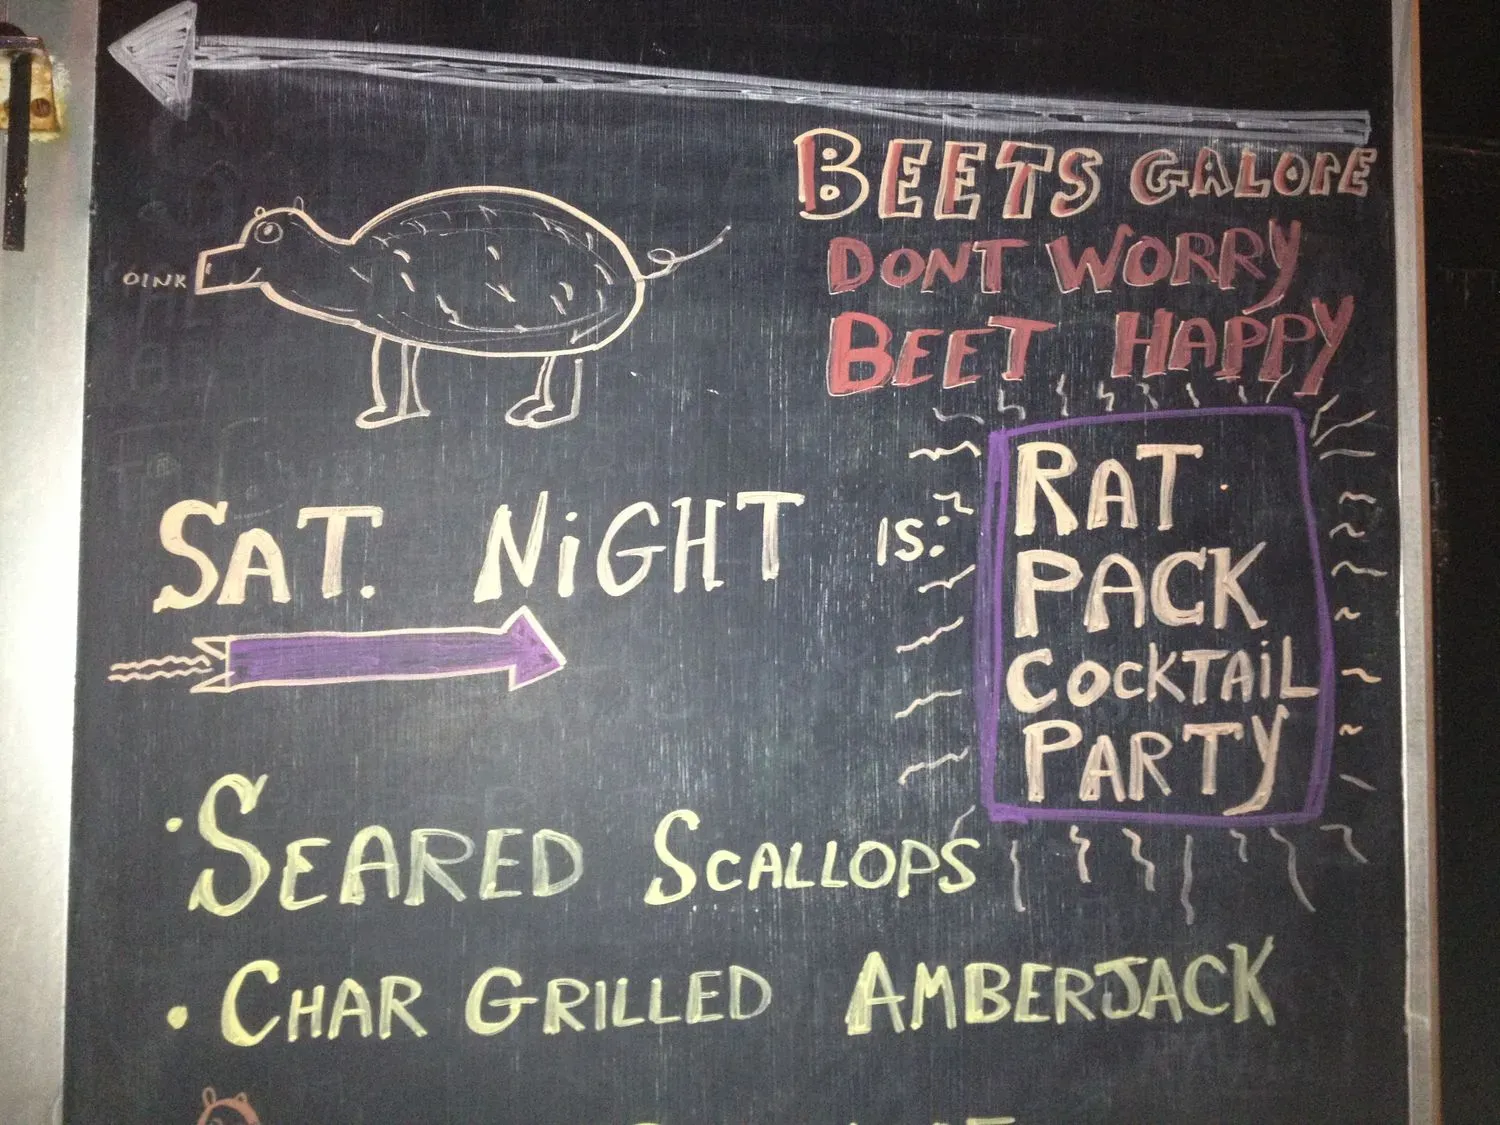 BEETS GALORE
DONT WORRY
BEET HAPPY
OINK
SAT. NIGHT IS:
RAT
PACK
COCKTAIL
PARTY
• SEARED SCALLOPS
• CHAR GRILLED AMBERJACK